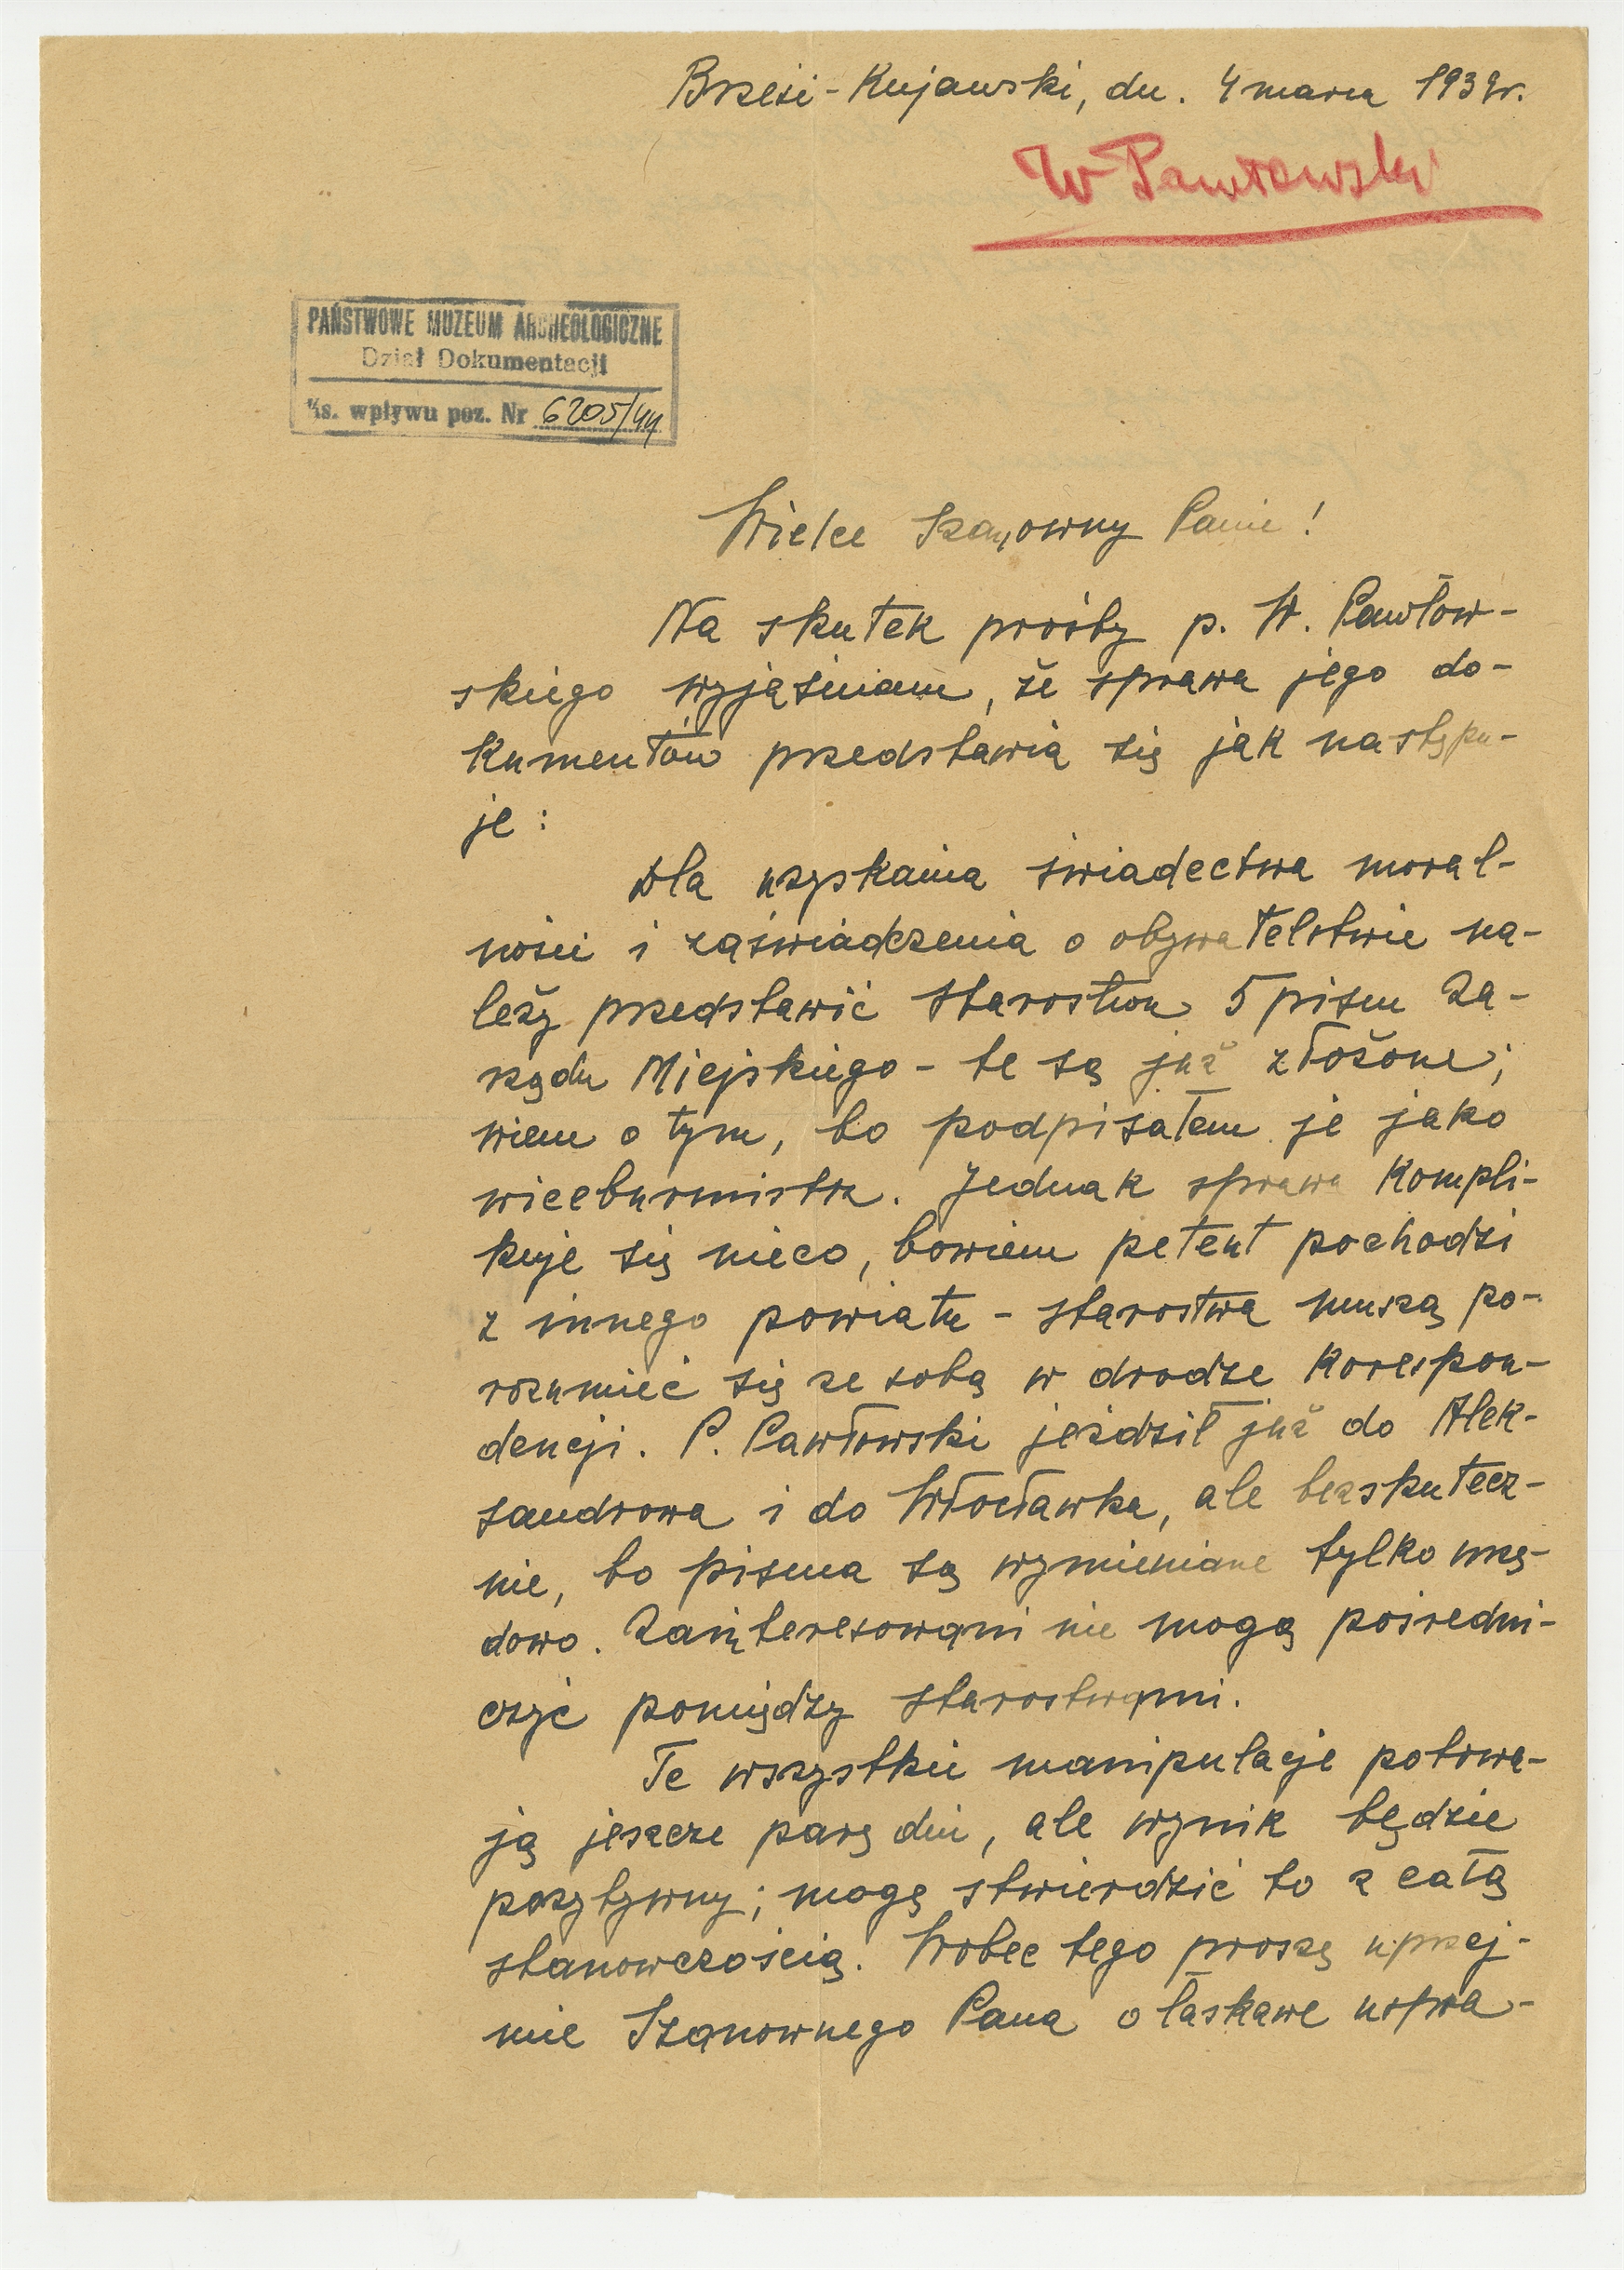 Brześć-Kujawski, dn. 4 marca 1939r.
W Pawłowski
PAŃSTWOWE MUZEUM ARCHEOLOGICZNE
Dział Dokumentacji
Ks. wpływu poz. Nr 6205/44
Wielce Szanowny Panie!
Na skutek prośby p. W. Pawłow-
skiego wyjaśniam, że sprawa jego do-
kumentów przedstawia się jak następu-
je:
Dla uzyskania świadectwa moral-
ności i zaświadczenia o obywatelstwie na-
leży przedstawić starostwu 5 pism Za-
rządu Miejskiego - te są już złożone;
wiem o tym, bo podpisałem je jako
wiceburmistrz. Jednak sprawa kompli-
kuje się nieco, bowiem petent pochodzi
z innego powiatu - starostwa muszą po-
rozumieć się ze sobą w drodze korespon-
dencji. P. Pawłowski jeździł już do Alek-
sandrowa i do Włocławka, ale bezskutecz-
nie, bo pisma są wymieniane tylko urzę-
dowo. Zainteresowani nie mogą pośredni-
czyć pomiędzy starostwami.
Te wszystkie manipulacje potrwa-
ją jeszcze parę dni, ale wynik będzie
pozytywny; mogę stwierdzić to z całą
stanowczością. Wobec tego proszę uprzej-
mie Szanownego Pana o łaskawe uspra-